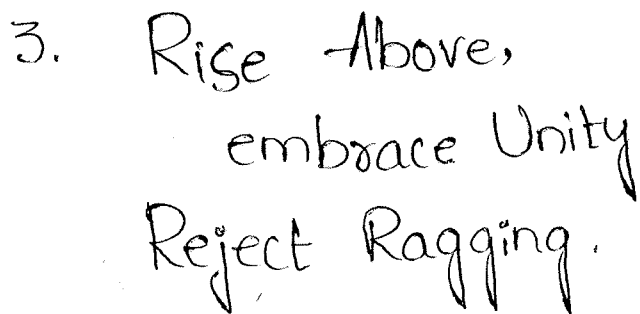 3. Rise Above,
embrace Unity
Reject Ragging.